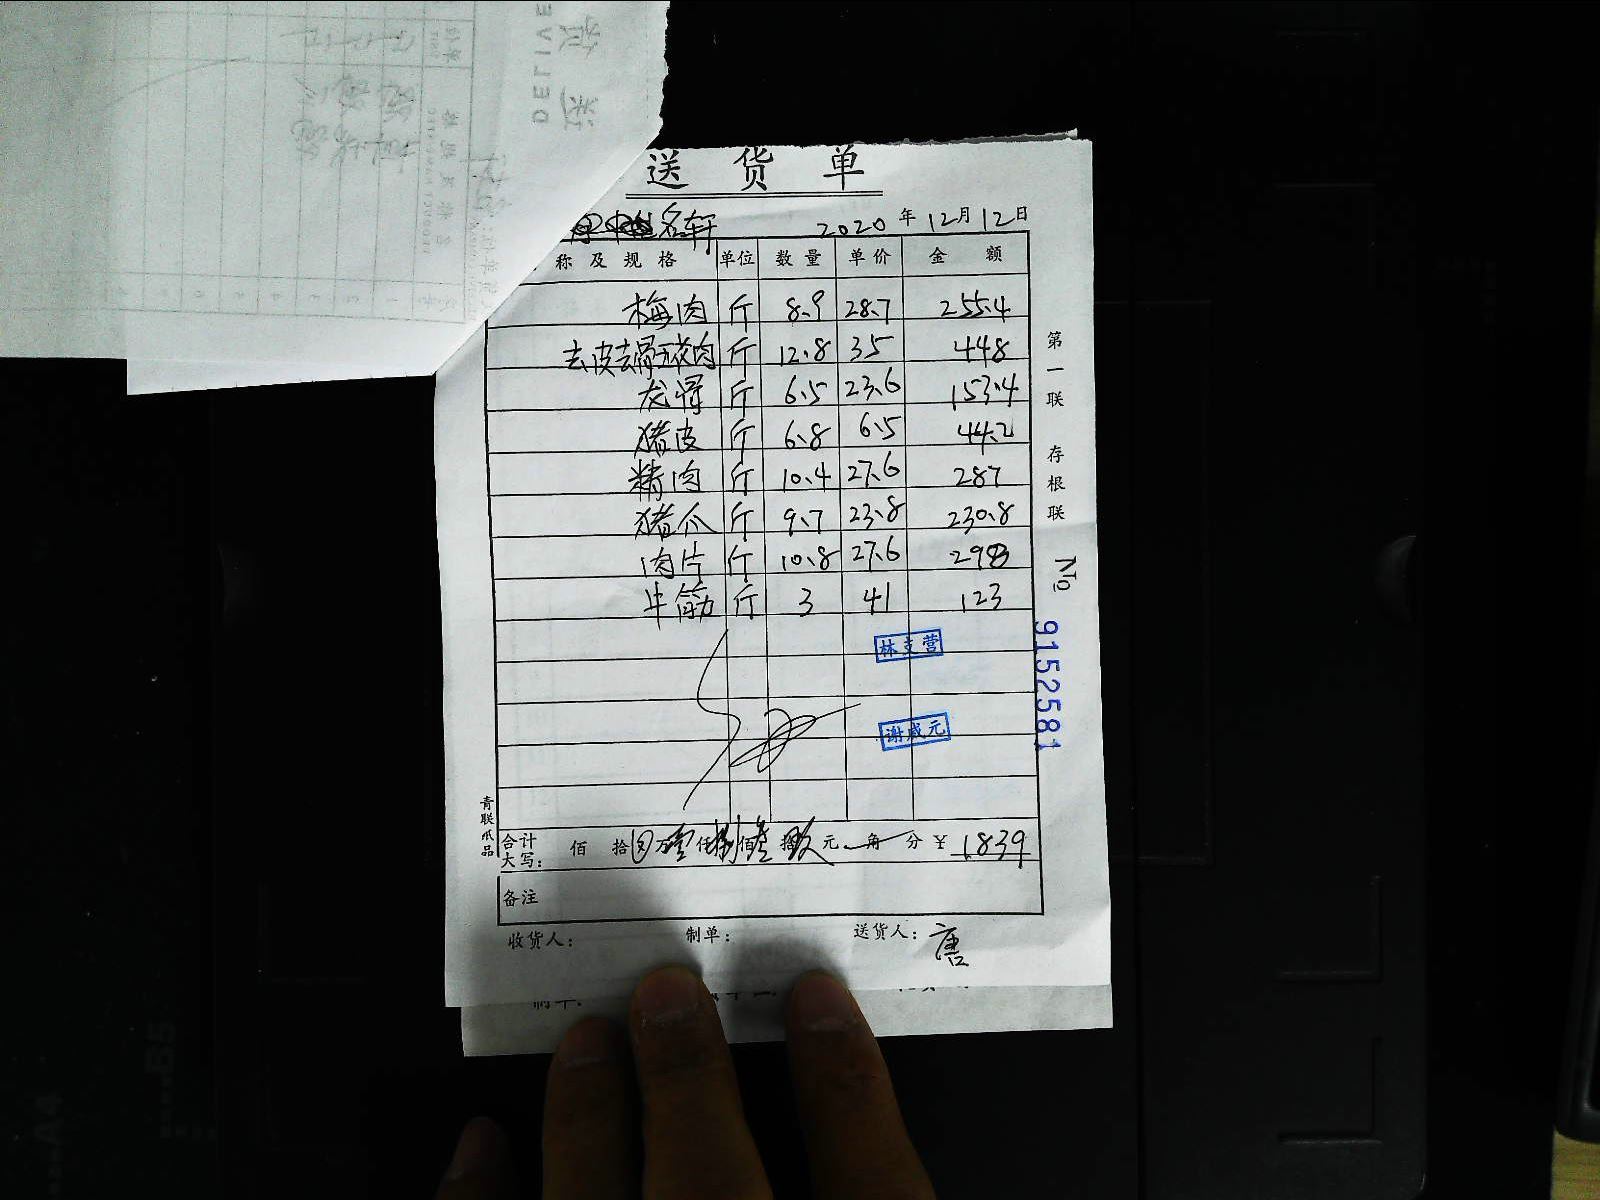 送货单
名轩 2020年12月12日
称及规格 单位 数量 单价 金额
梅肉 斤 8.9 28.7 255.4
去皮去骨五花肉 斤 12.8 35 448
龙骨 斤 6.5 23.6 153.4
猪皮 斤 6.8 6.5 44.2
精肉 斤 10.4 27.6 287
猪爪 斤 9.7 23.8 230.8
肉片 斤 10.8 27.6 298
牛筋 斤 3 41 123
林支营
谢威元
合计
大写： 佰 拾 万壹仟捌佰叁拾玖元 角 分 ¥ 1839
备注
收货人： 制单： 送货人：唐
第一联 存根联
№ 9152581
青联纸品
DELIVE
制单：
B5
A4